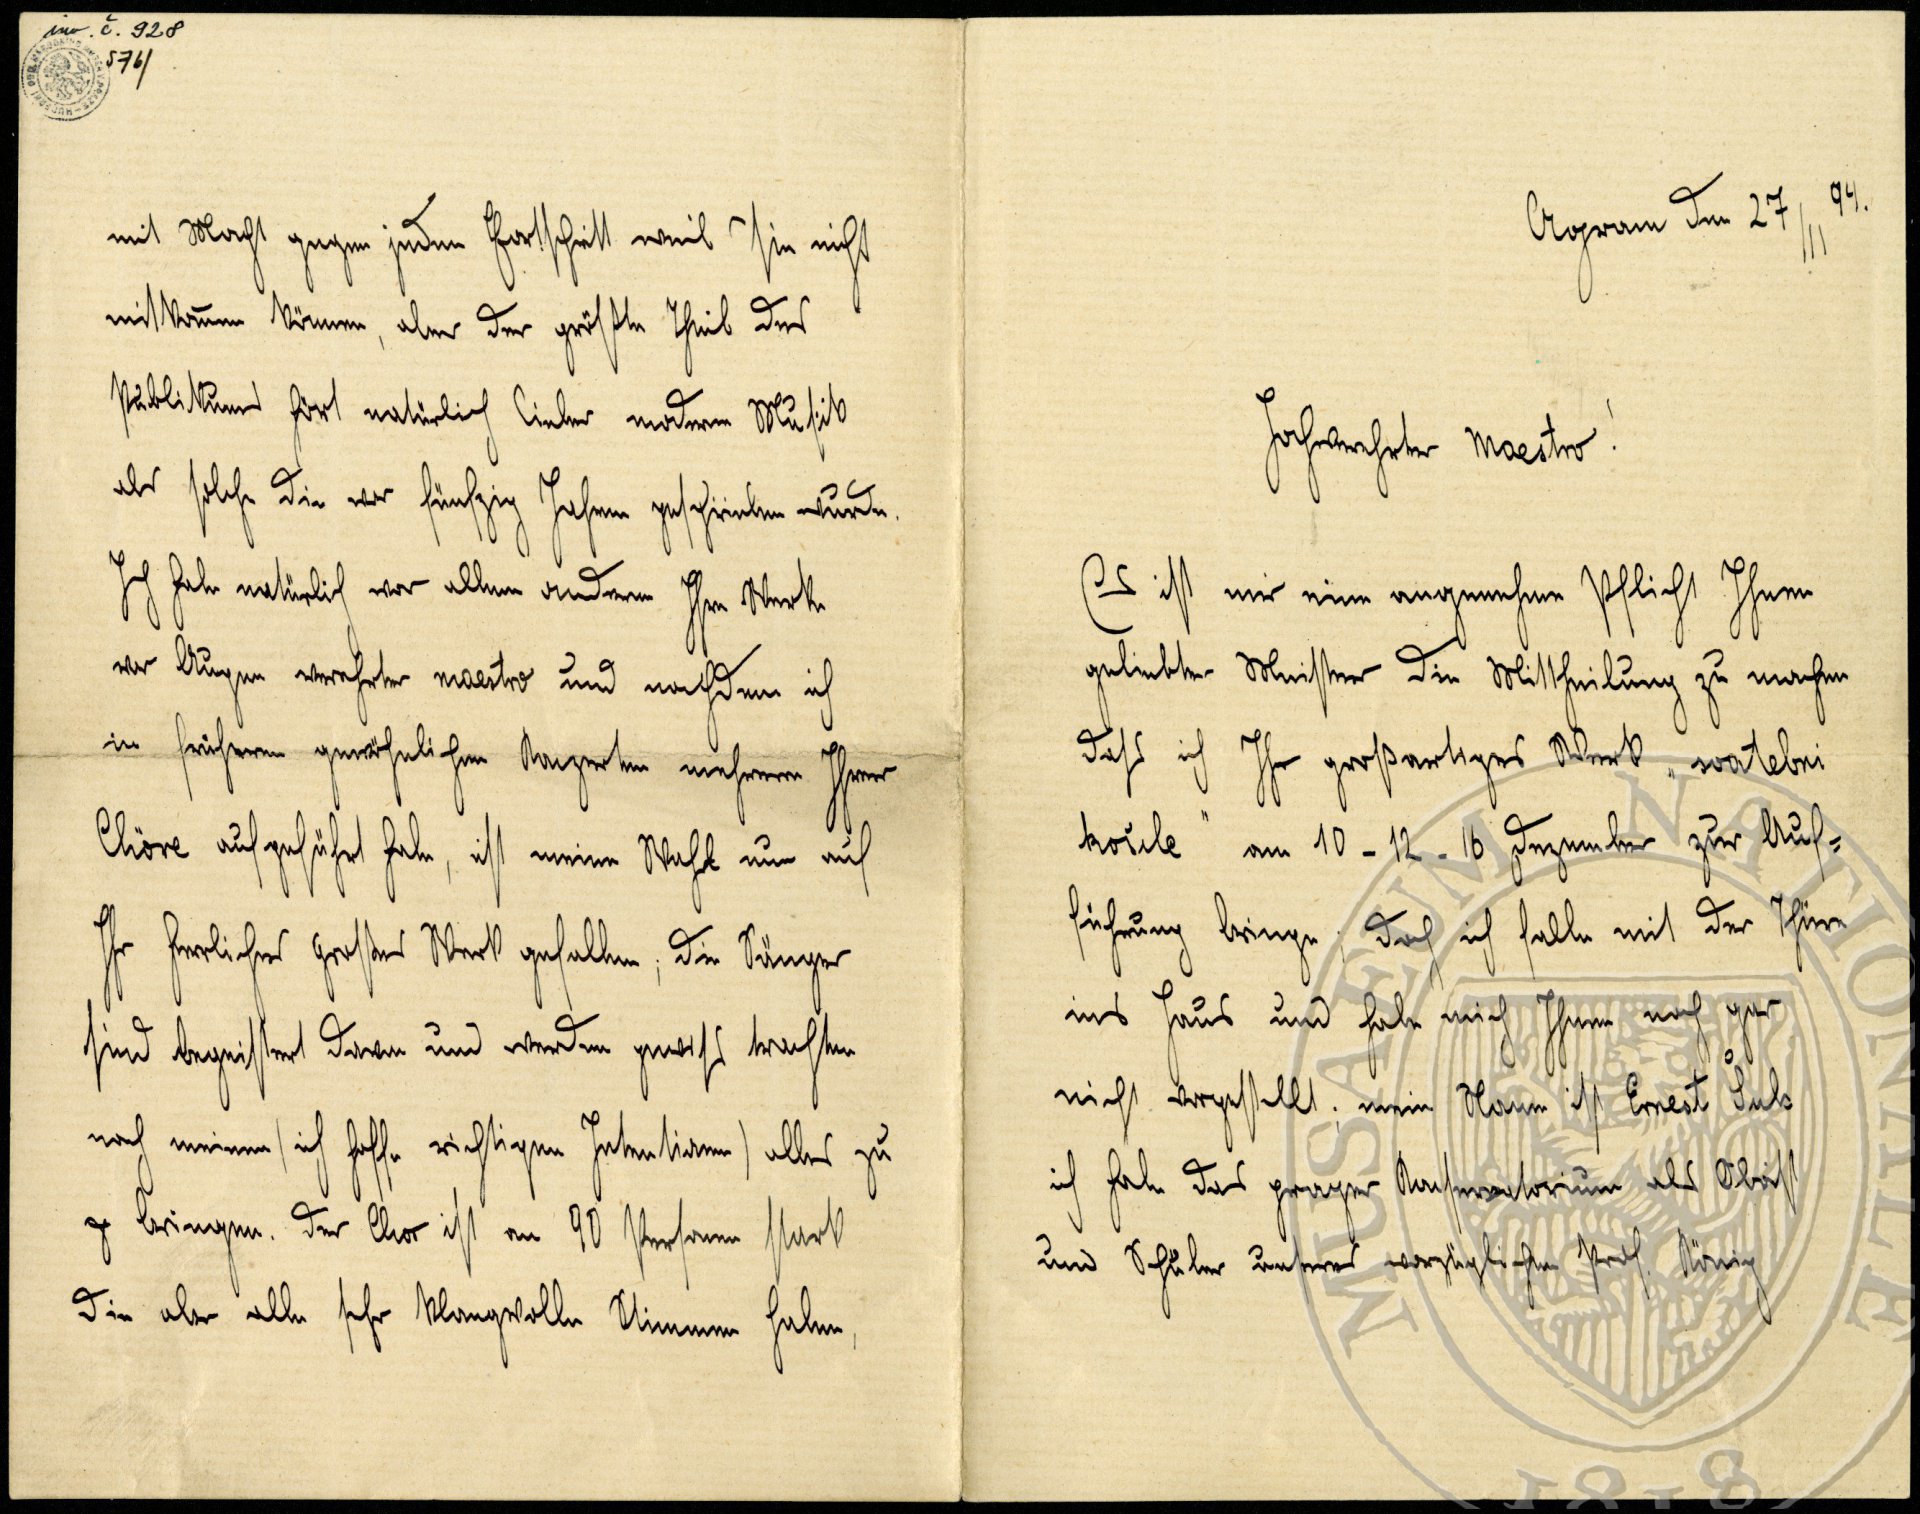 inv. č. 928
576/
mit Macht gegen jeden Fortschritt weil sie nicht
mitkom̄en können, aber der größte Theil des
Publikums hört natürlich lieber moderne Musik
als solche die vor fünfzig Jahren geschrieben wurde.
Ich habe natürlich vor allem anderen Ihre Werke
vor Augen verehrter maestro und nachdem ich
in früheren gewöhnlichen Konzerten mehrere Ihrer
Chöre aufgeführt habe, ist meine Wahl nun auf
Ihr herrliches großes Werk gefallen; die Sänger
sind begeistert davon und werden gewiß trachten
nach meinen (ich hoffe richtigen Intentionen) alles zu
bringen. Der Chor ist an 90 Personen stark
die aber alle sehr klangvolle Stimmen haben,
Agram den 27/III 94.
Hochverehrter Maestro!
Es ist mir eine angenehme Pflicht Ihnen
geliebter Meister die Mittheilung zu machen
daß ich Ihr großartiges Werk „svatebni
košile" am 10 - 12 - 16 Dezember zur Auf=
führung bringe; doch ich falle mit der Thüre
ins Haus und habe mich Ihnen noch gar
nicht vorgestellt; mein Name ist Ernest Šulz
ich habe das prager Konservatorium als Oboist
und Schüler unseres vorzüglichen Prof. König
MUSAEUM NATIONALE
1818